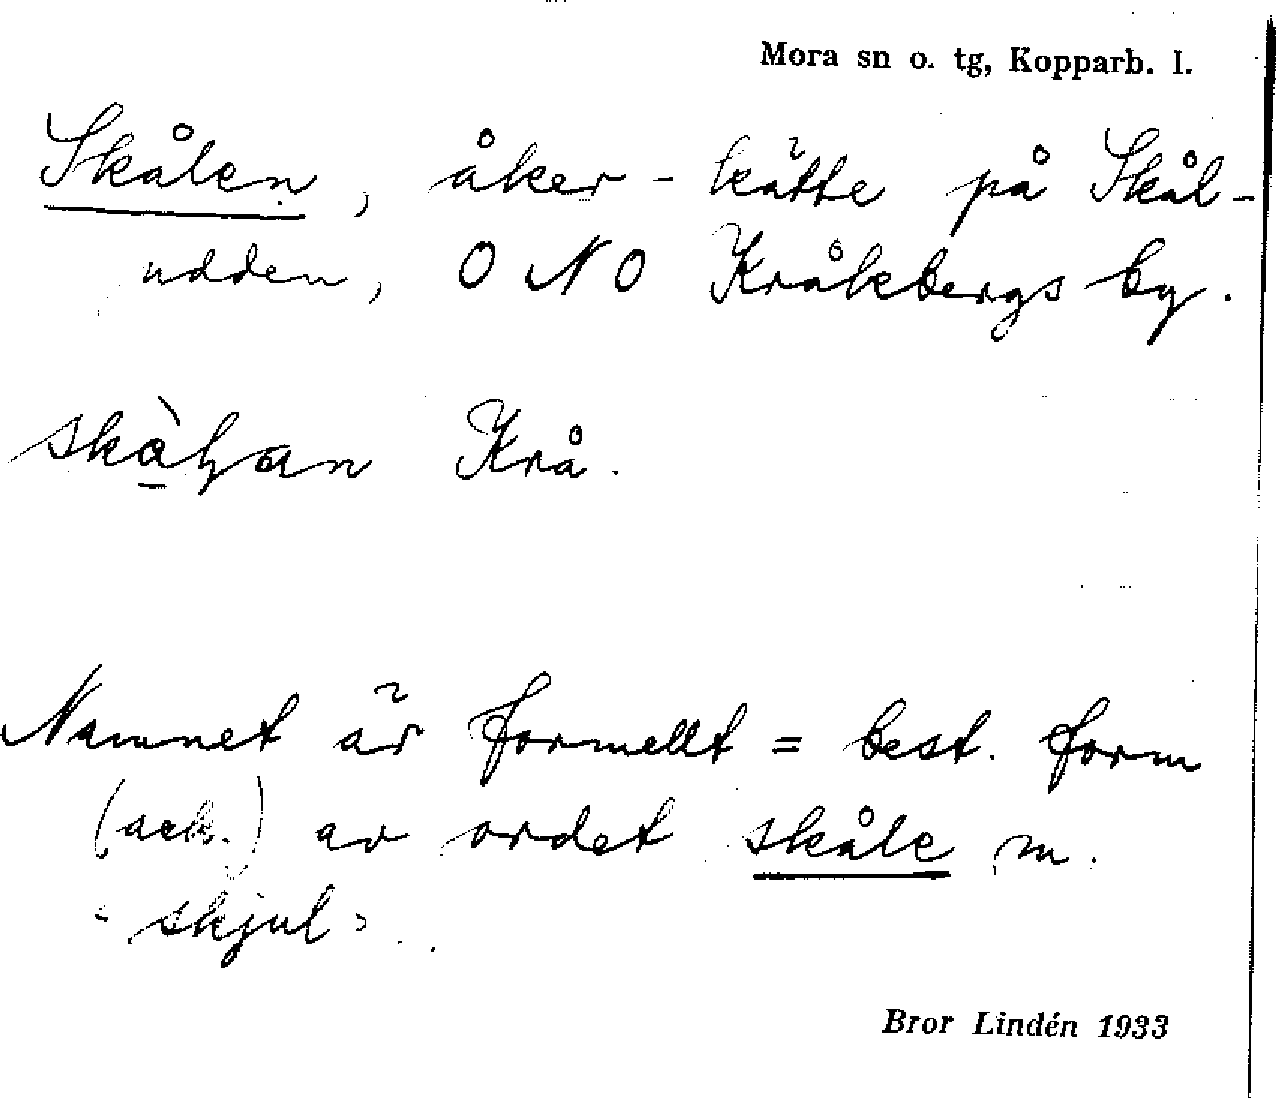 Mora sn o. tg, Kopparb. l.
Skålen, åker-kätte på Skål-
udden, ONO Kråkbergs by.
Krå.
Namnet är formellt = best. form
(ack.) av ordet skåle m.
"skjul".
Bror Lindén 1933